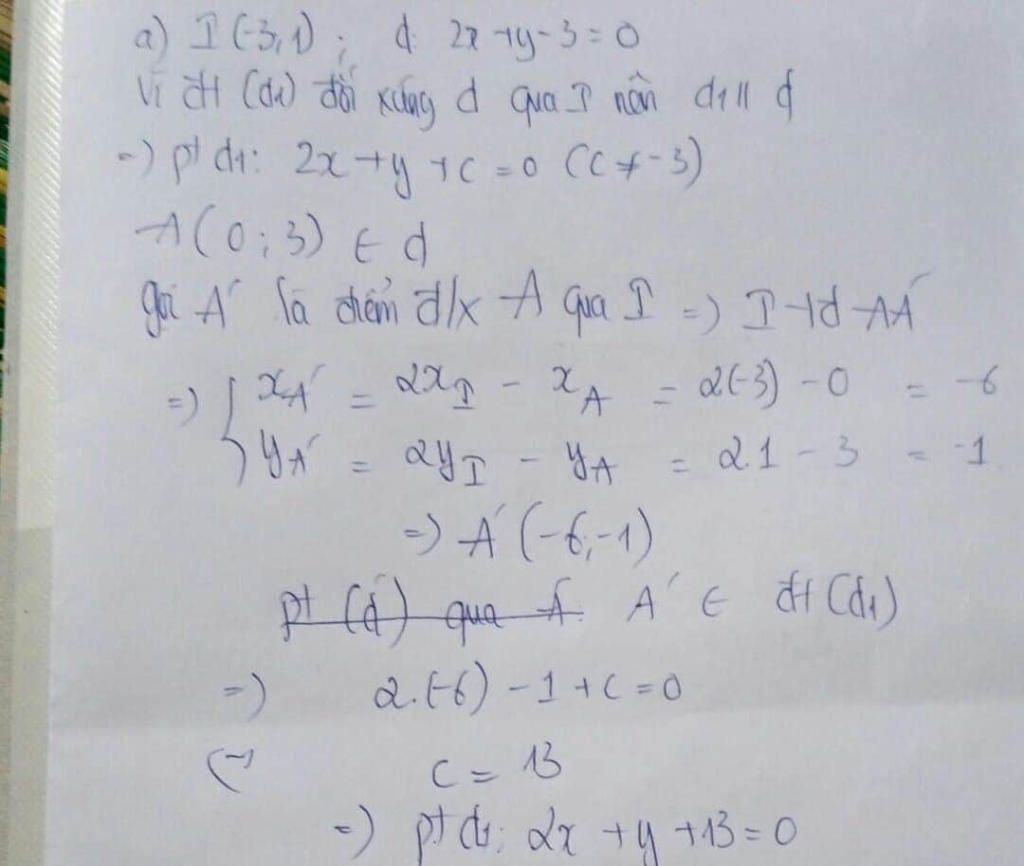 a) I(-3,1) ; d: 2x+y-3=0
Vì đt (d1) đối xứng d qua I nên d1 // d
=) pt d1: 2x+y+c=0 (c≠-3)
A(0;3) ∈ d
gọi A' là điểm đ/x A qua I =) I tđ AA'
=) { xA' = 2xI - xA = 2(-3) - 0 = -6
yA' = 2yI - yA = 2.1 - 3 = -1
=) A'(-6;-1)
pt (d) qua A' A' ∈ đt (d1)
=) 2.(-6) - 1 + c = 0
(=) c = 13
=) pt d1: 2x + y + 13 = 0